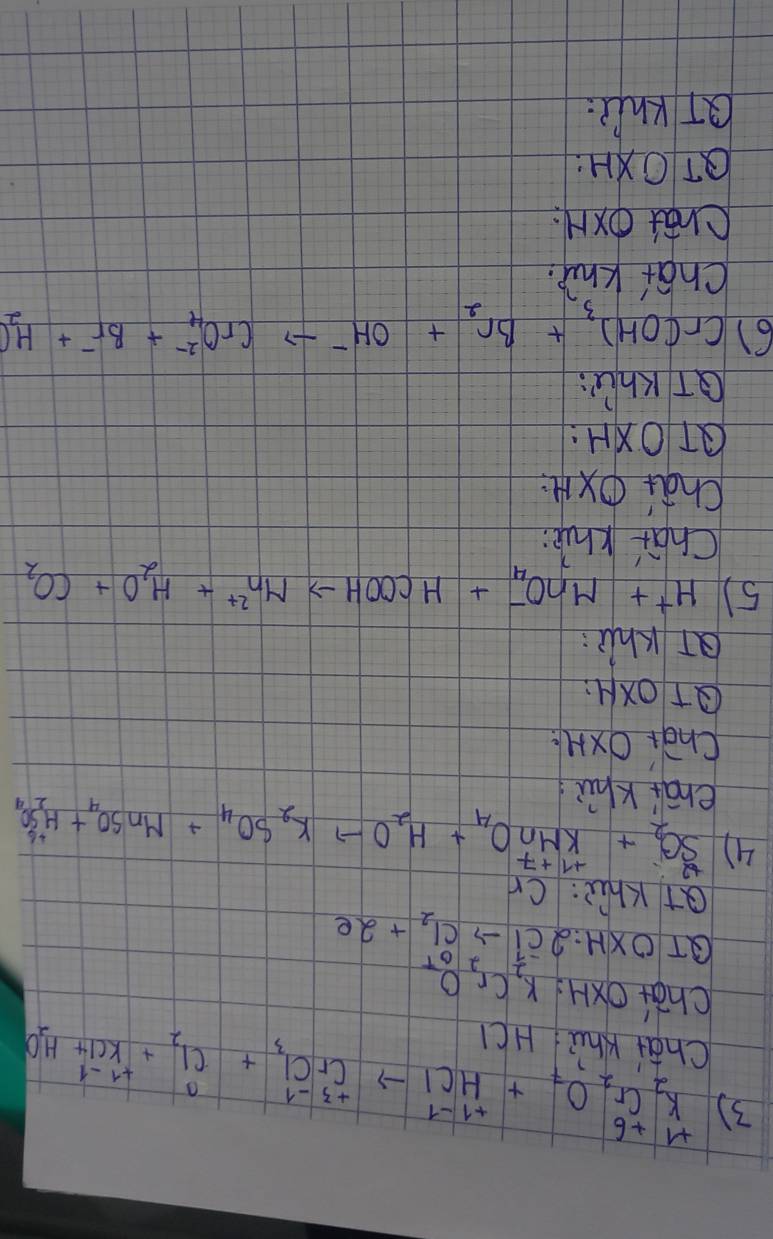 +1 +6 +1 -1 +3 -1 0 +1 -1
3) K₂Cr₂O₇ + HCl → CrCl₃ + Cl₂ + KCl + H₂O
Chất khử: HCl
Chất OXH: K₂Cr₂O₇
QT OXH: 2Cl⁻¹ → Cl₂ + 2e
QT khử: Cr
+1 +7 +6
4) SO₂ + KMnO₄ + H₂O → K₂SO₄ + MnSO₄ + H₂SO₄
Chất khử:
Chất OXH:
QT OXH:
QT khử:
5) H⁺ + MnO₄⁻ + HCOOH → Mn²⁺ + H₂O + CO₂
Chất khử:
Chất OXH:
QT OXH:
QT khử:
6) Cr(OH)₃ + Br₂ + OH⁻ → CrO₄²⁻ + Br⁻ + H₂O
Chất khử:
Chất OXH:
QT OXH:
QT khử: